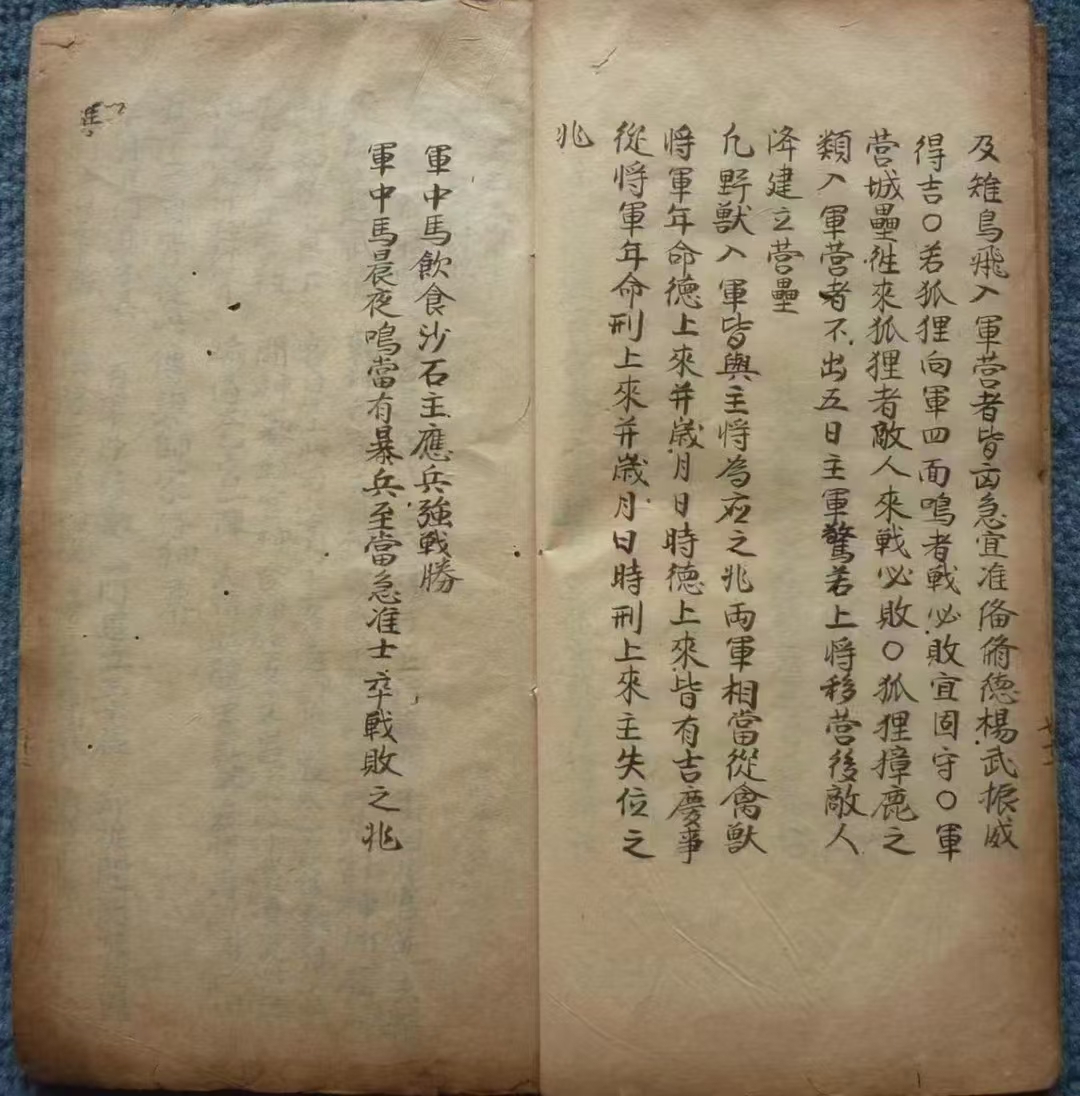 及雉鳥飛入軍营者皆凶急宜准俻脩德楊武振威
得吉〇若狐狸向軍四面鳴者戰必敗宜固守〇軍
营城壘徃來狐狸者敵人來戰必敗〇狐狸獐鹿之
類入軍营者不出五日主軍驚若上將移营後敵人
降建立营壘
凢野獸入軍皆與主將為应之兆両軍相當從禽獸
将軍年命德上來并歲月日時德上來皆有吉慶事
從将軍年命刑上來并歲月日時刑上來主失位之
兆
軍中馬飲食沙石主應兵強戰勝
軍中馬晨夜鳴當有暴兵至當急准士卒戰敗之兆